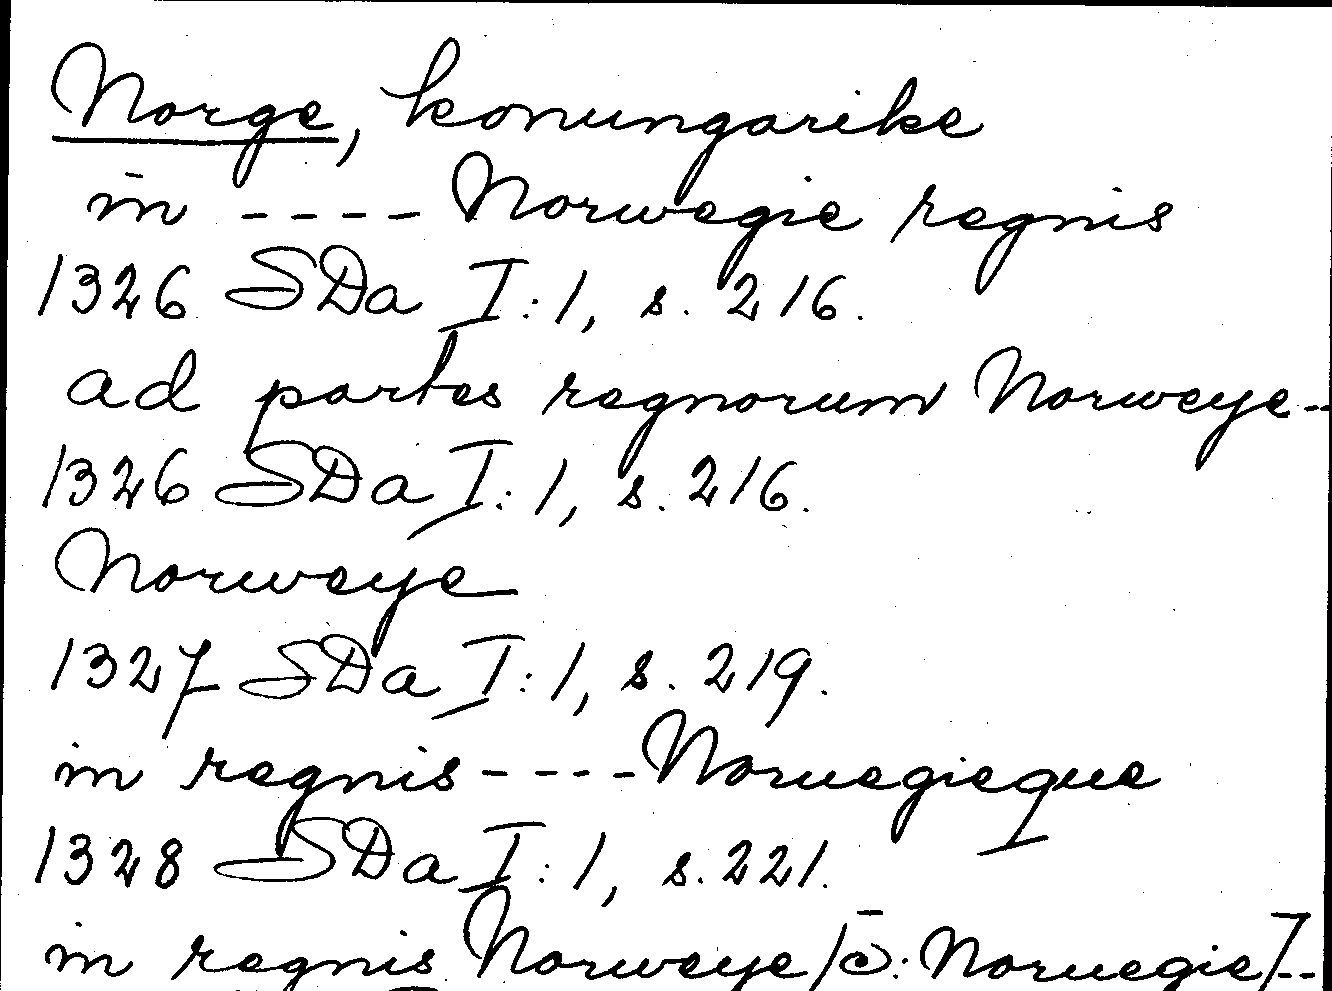 Norge, konungarike
in ---- Norwegie regnis
1326 SDa I:1, s. 216.
ad partes regnorum Norweye--
1326 SDa I:1, s. 216.
Norweye
1327 SDa I:1, s. 219.
in regnis ---- Noruegieque
1328 SDa I:1, s. 221.
in regnis Norweye [ɔ: Noruegie]--